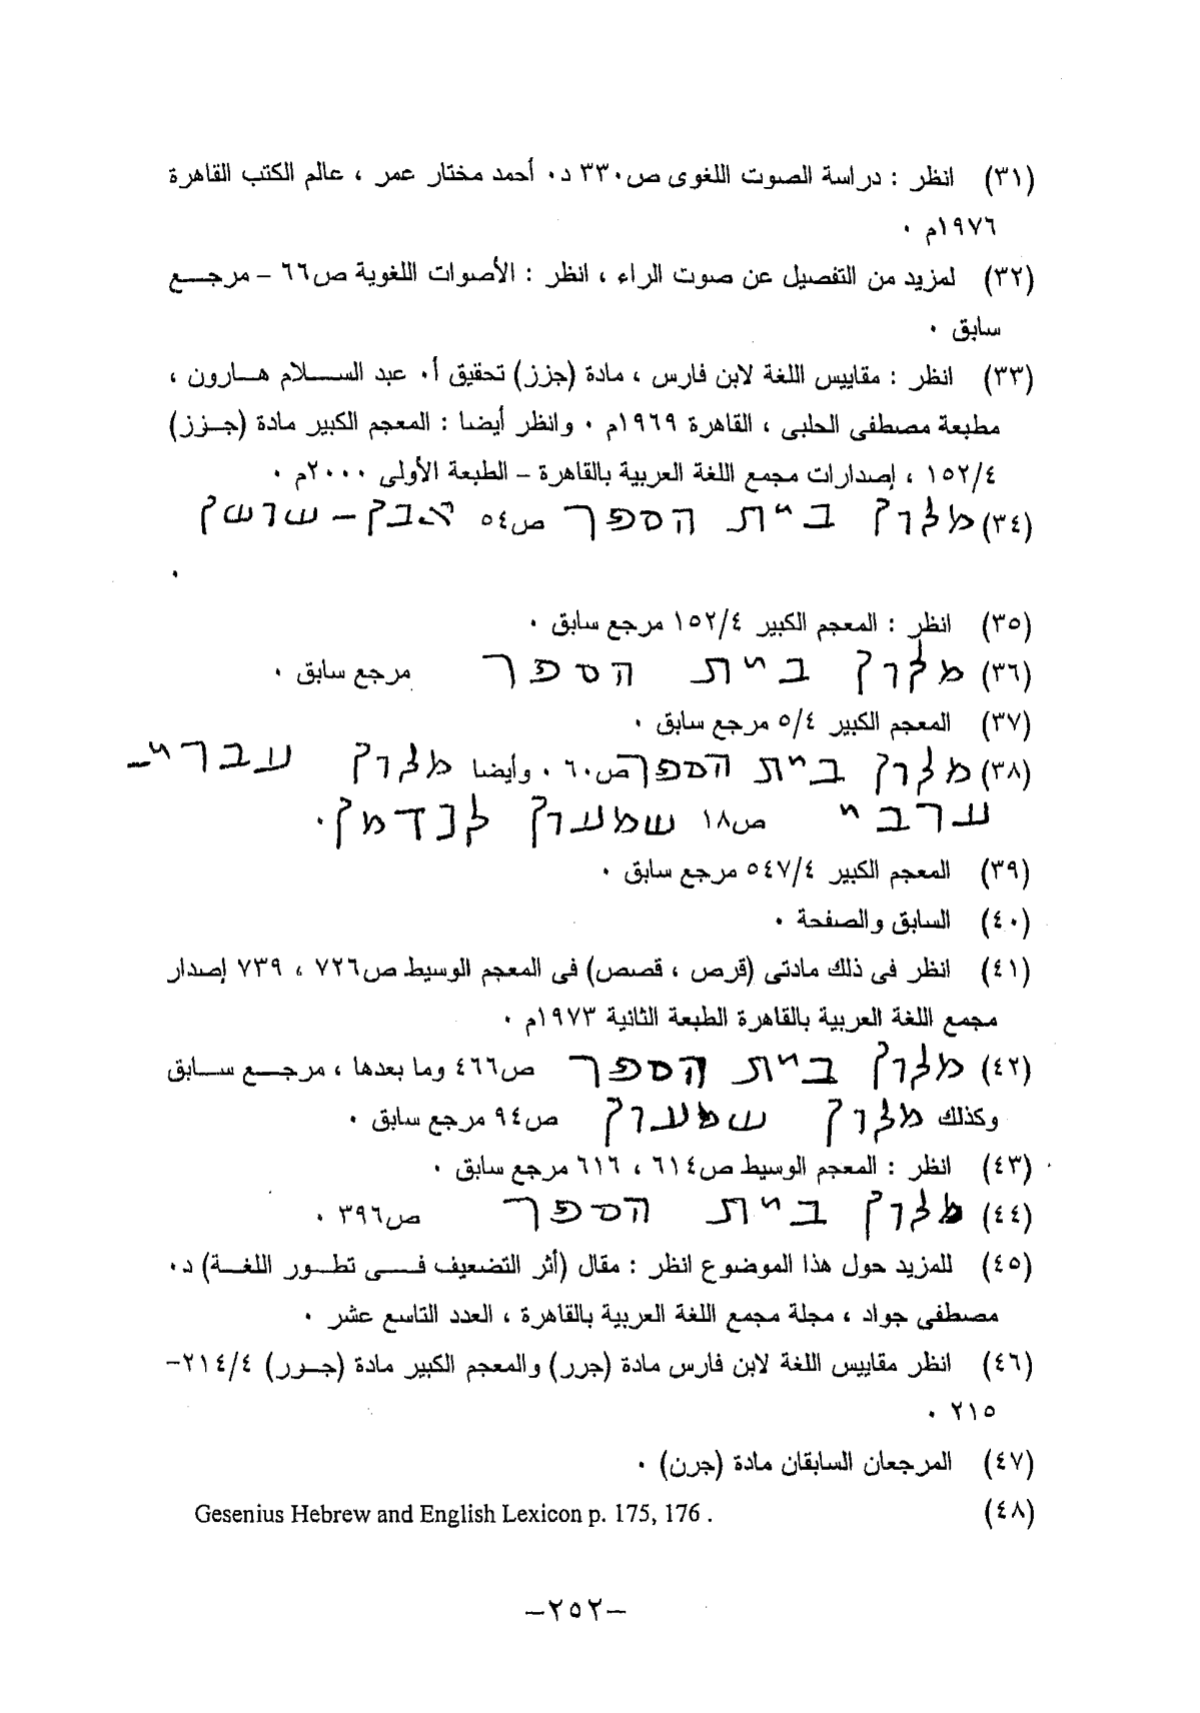 (٣١) انظر : دراسة الصوت اللغوى ص٣٣٠ د٠ أحمد مختار عمر ، عالم الكتب القاهرة
١٩٧٦م ٠
(٣٢) لمزيد من التفصيل عن صوت الراء ، انظر : الأصوات اللغوية ص٦٦ – مرجع
سابق ٠
(٣٣) انظر : مقاييس اللغة لابن فارس ، مادة (جزز) تحقيق أ٠ عبد السلام هارون ،
مطبعة مصطفى الحلبى ، القاهرة ١٩٦٩م ٠ وانظر أيضا : المعجم الكبير مادة (جزز)
١٥٢/٤ ، إصدارات مجمع اللغة العربية بالقاهرة – الطبعة الأولى ٢٠٠٠م ٠
(٣٤) מלון בית הספר ص٥٤ אבן–שושן
٠
(٣٥) انظر : المعجم الكبير ١٥٢/٤ مرجع سابق ٠
(٣٦) מלון בית הספר مرجع سابق ٠
(٣٧) المعجم الكبير ٥/٤ مرجع سابق ٠
(٣٨) מלון בית הספר ص٦٠ ٠ وأيضا מלון עברי–
ערבי ص١٨ שמעון לנדמן ٠
(٣٩) المعجم الكبير ٥٤٧/٤ مرجع سابق ٠
(٤٠) السابق والصفحة ٠
(٤١) انظر فى ذلك مادتى (قرص ، قصص) فى المعجم الوسيط ص٧٢٦ ، ٧٣٩ إصدار
مجمع اللغة العربية بالقاهرة الطبعة الثانية ١٩٧٣م ٠
(٤٢) מלון בית הספר ص٤٦٦ وما بعدها ، مرجع سابق
وكذلك מלון שמעון ص٩٤ مرجع سابق ٠
(٤٣) انظر : المعجم الوسيط ص٦١٤ ، ٦١٦ مرجع سابق ٠
(٤٤) מלון בית הספר ص٣٩٦ ٠
(٤٥) للمزيد حول هذا الموضوع انظر : مقال (أثر التضعيف فى تطور اللغة) د٠
مصطفى جواد ، مجلة مجمع اللغة العربية بالقاهرة ، العدد التاسع عشر ٠
(٤٦) انظر مقاييس اللغة لابن فارس مادة (جرر) والمعجم الكبير مادة (جور) ٢١٤/٤–
٢١٥ ٠
(٤٧) المرجعان السابقان مادة (جرن) ٠
(٤٨) Gesenius Hebrew and English Lexicon p. 175, 176 .
–٢٥٢–